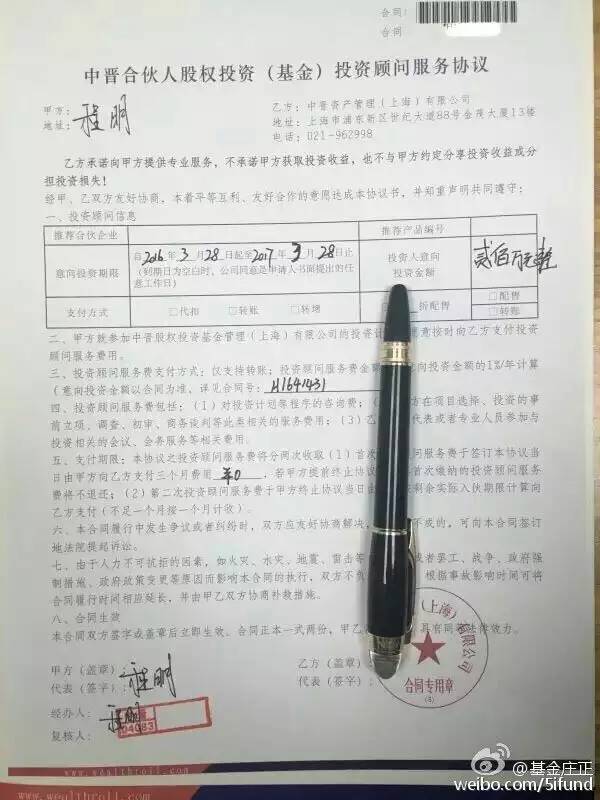 合同:
合同
中晋合伙人股权投资(基金)投资顾问服务协议
甲方: 程明
地址:
乙方:中晋资产管理(上海)有限公司
地址:上海市浦东新区世纪大道88号金茂大厦13楼
电话:021-962998
乙方承诺向甲方提供专业服务,不承诺甲方获取投资收益,也不与甲方约定分享投资收益或分
担投资损失!
经甲、乙双方友好协商,本着平等互利、友好合作的意愿达成本协议书,并知重声明共同遵守:
一、投资顾问信息
推荐合伙企业
推荐产品编号
意向投资期限
自2016年3月28日起至2017年3月28日止
(到期日为空白时,公司同意是申请人书面提出的任
意工作日)
投资人意向
投资金额
贰佰万元整
支付方式
□代扣 □转账 □转增
折配售
□配售
□转账
二、甲方就参加中晋股权投资基金管理(上海)有限公司的投资计
愿意接时向乙方支付投资
顾问服务费用。
三、投资顾问服务费支付方式:仅支持转账;投资顾问服务费金额
意向投资金额的1%/年计算
(意向投资金额以合同为准,详见合同号:H1641431
四、投资顾问服务费包括:(1)对投资计划等程序的咨询费;(
方在项目选择、投资的事
前立项、调查、初审、商务谈判等此类相关的服务费用;(3)乙
代表或者专业人员参加与
投资相关的会议、会务服务等相关费用。
五、支付期限:本协议之投资顾问服务费将分两次收取(1)首次
问服务费于签订本协议当
日由甲方向乙方支付三个月费用 ¥0 ,若甲方提前终止协议
首次缴纳的投资顾问服务
费将不退还;(2)第二次投资顾问服务费于甲方终止协议当日由
剩余实际入伙期限计向
乙方支付(不足一个月按一个月计收)。
六、本合同履行中发生争议或者纠纷时,双方应友好协商解决,
不成的,可向本合同签订
地法院提起诉讼。
七、由于人力不可抗拒的因素,如火灾、水灾、地震、雷击等
或者罢工、战争、政府强
制措施、政府政策变更等原因而影响本合同的执行,双方不负
根据事故影响时间可将
合同履行时间相应延长,并由甲乙双方协商补救措施。
八、合同生效
本合同双方签字或盖章后立即生效。合同正本一式两份,甲乙
具有同等法律效力。
甲方(盖章)
代表(签字): 程明
乙方(盖章)
代表(签字):
(上海)有限公司
合同专用章
(8)
经办人: 程明
04083
复核人:
www.wealthroll.com
www.wealthroll.com
@基金庄正
weibo.com/5ifund